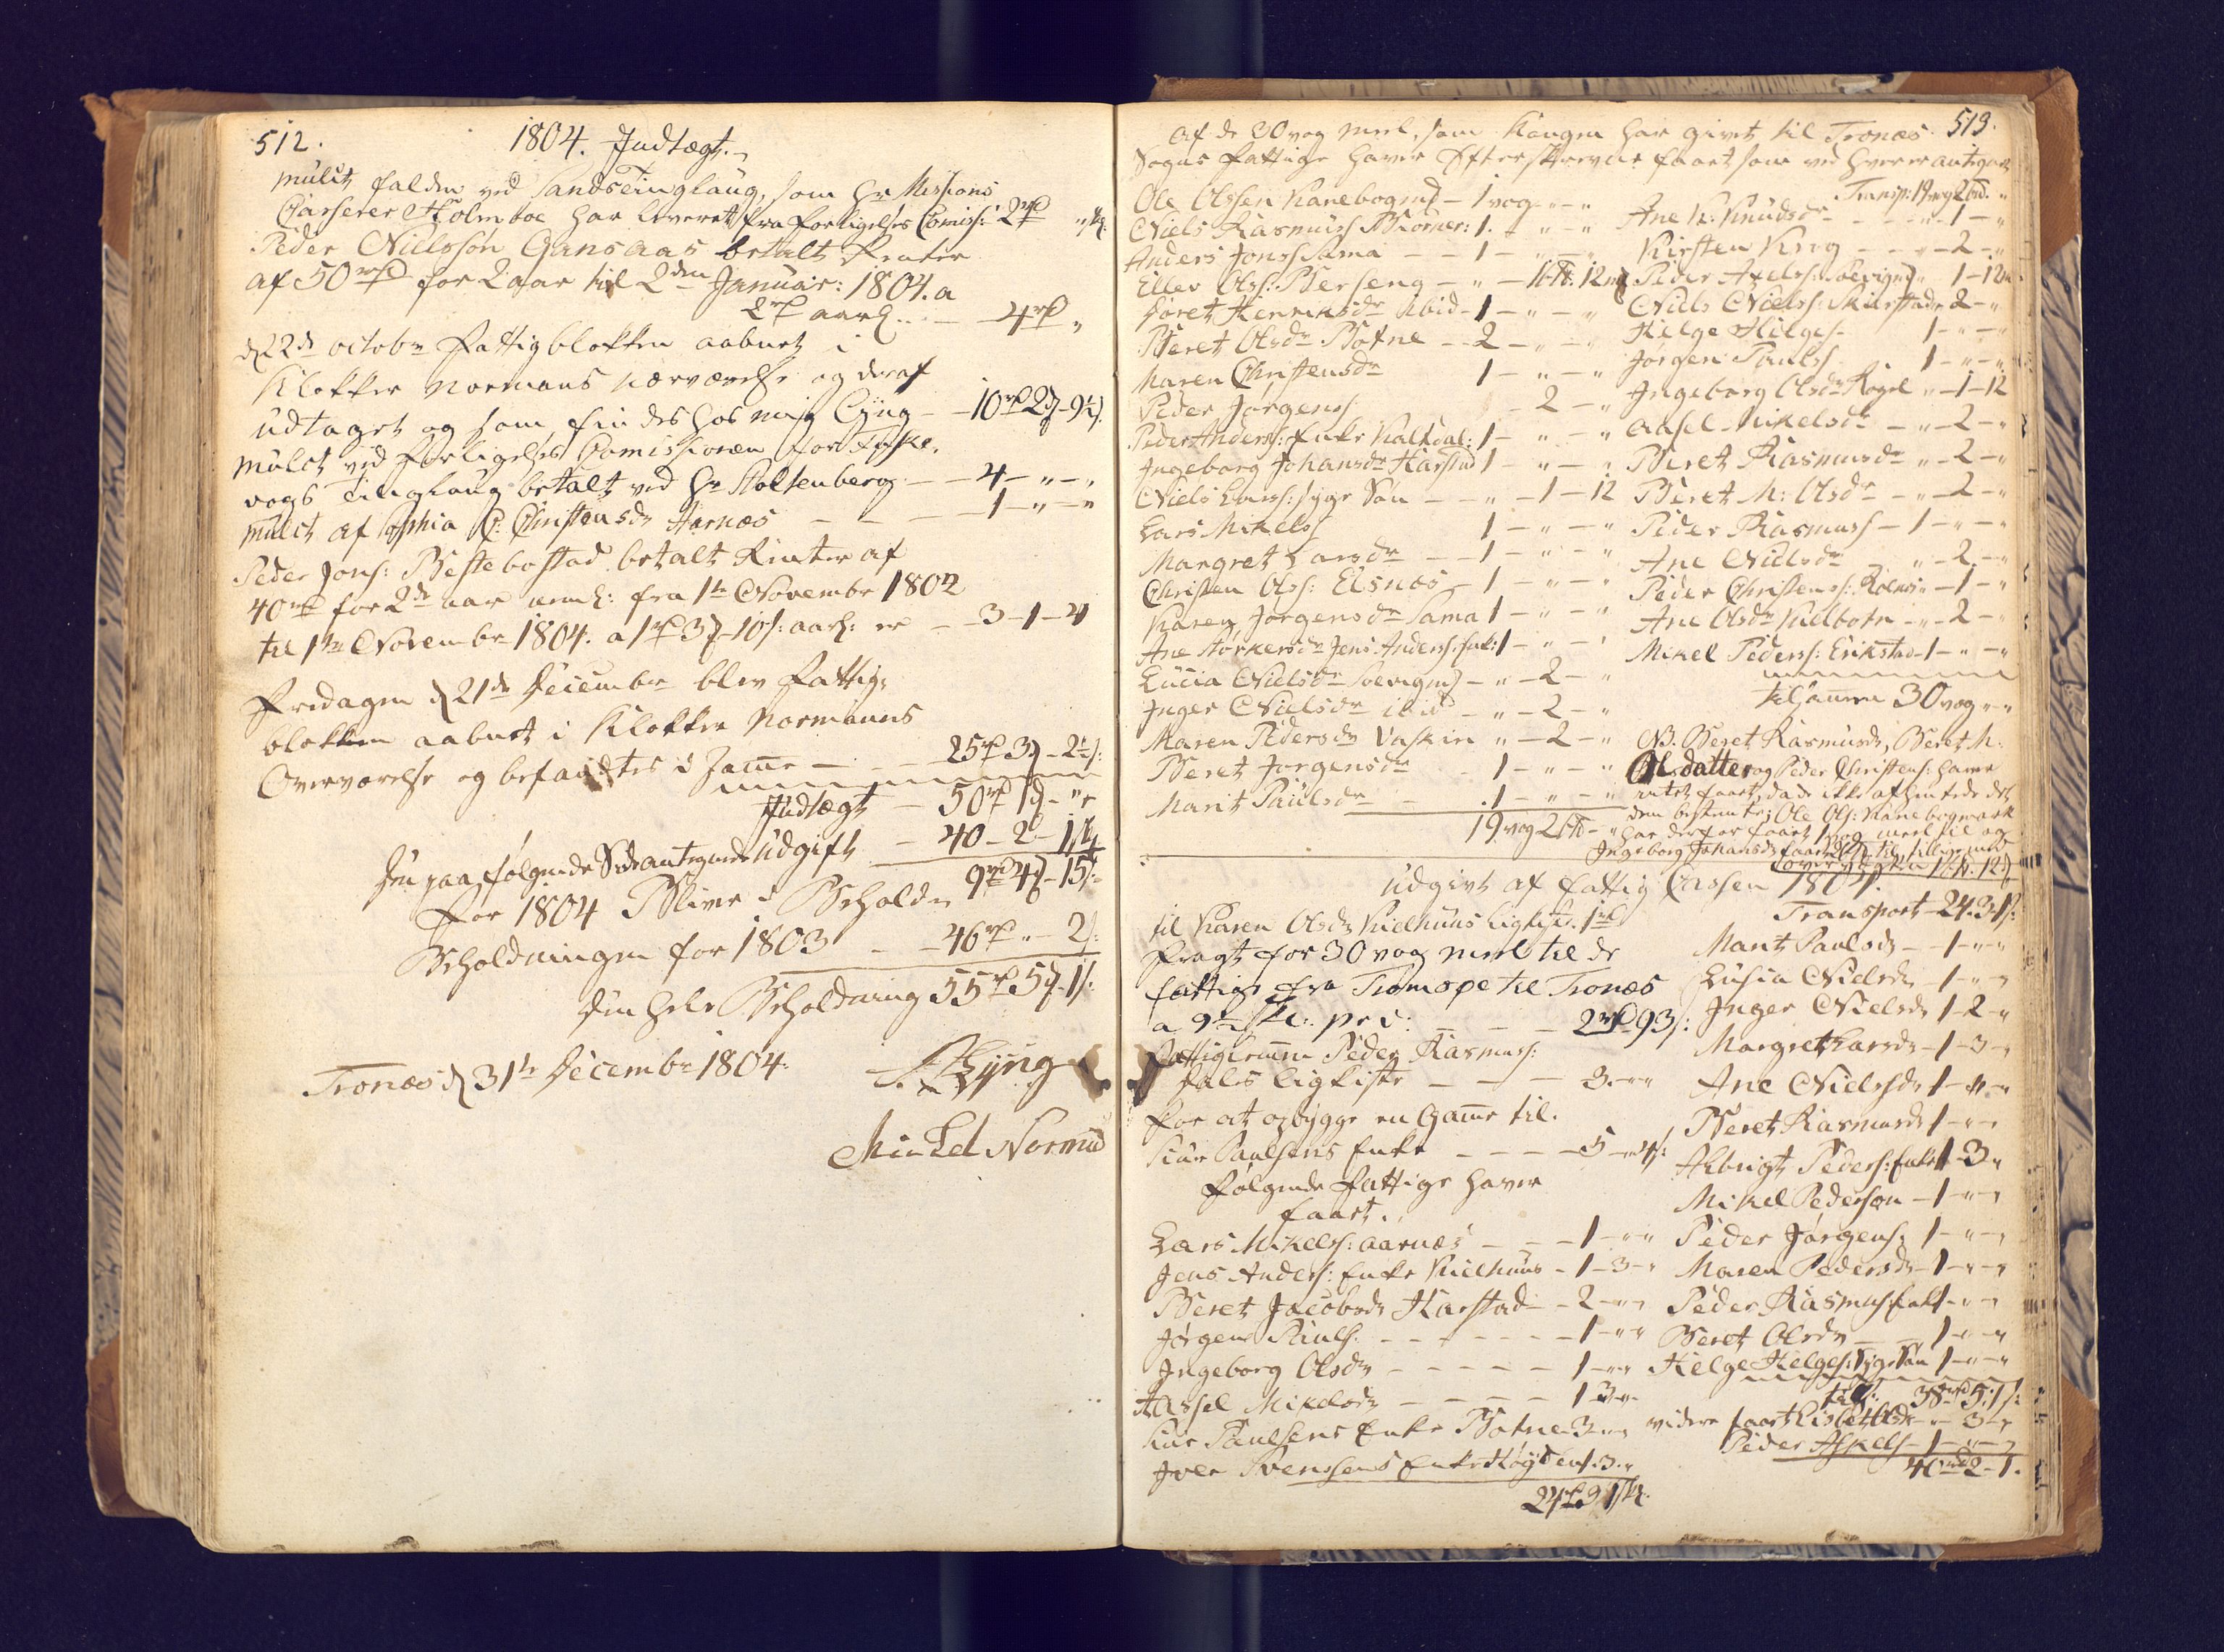 512.
1804. Indtægt.
Mulct falden ved Sandsting laug, som Hr Missions
Casserer Holmboe har leveret fra Forligelses Comiss: 2rd
Peder Nielssøn Gansaas betalt Renter
af 50rd for 2 aar til 2den Januar: 1804. a
2rd aarl. — 4rd „
d 22de octobr Fattigblokken aabnet i
Klokker Normans nærværelse og deraf
udtaget og som findes hos mig Ejng — 10rd
Mulct ved Forligelses Comissionen for
vogs Tinglaug betalt ved Hr Stoltenberg — 4 — „ — „
Mulct af Sophia C: Christensdr Aarnæs — 1 — „ — „
Peder Jons: Bessebostad betalt Renter af
40rd for 2de aar neml: fra 1te Novembr 1802
til 1te Novembr 1804. a 1rd 3 — 10s: aarl: er — 3 — 1 — 4
Fredagen d 21de Decembr blev Fattig-
blokken aabnet i Klokker Normanns
Overværelse og befandtes i Samme — 25rd 3 — 2½s:
Indtægt — 50rd 1
Den paa følgende Side antegnede udgift — 40 — 2 — 1s
For 1804 Bliver i Behold 9rd 4 — 15s:
Beholdningen for 1803 — 46rd „ — 2s:
Den hele Beholdning 55rd 5 1s:
Tronæs d 31te Decembr 1804.
Mickel Normand
513.
Af de 30 vog meel, som Kongen har givet til Tronæs
Sogns Fattige haver Efterskrevne faaet som ved hver er antegnet
Ole Olssen Kanebogmd — 1 vog „ — „
Niels Rasmuss Biørner: 1 — „ — „
Anders Jonss Sama — 1 — „ — „
Eller Olss: Berseng — „ — 1b℔: 12m
Døret Henriksdr ibid — 1 — „ — „
Beret Olsdr Botne — 2 — „ — „
Maren Christensdr 1 — „ — „
Peder Jørgenss — 2 — „
Peder Anderss: Enke Kalkdal: 1 — „ — „
Ingeborg Johansdr Harstad 1 — „ — „
Niels Larss: syge Søn — „ — 1 — 12
Lars Mikelss 1 — „ — „
Margret Larsdr — 1 — „ — „
Christen Olss: Elsnæs — 1 — „ — „
Karen Jørgensdr Sama 1 — „ — „
Ane Størkersdr Jens Anderss: Enk: 1 — „ — „
Lucia Nielsdr — „ — 2 — „
Inger Nielsdr ibid — „ — 2 — „
Maren Pedersdr Vaskin „ — 2 — „
Beret Jørgensdr — 1 — „ — „
Marit Paulsdr — 1 — „ — „
19 vog 2b℔ — „
Transp: 19 vog 2b℔. „
Ane K: Knudsdr — „ — 1 — „
Kirsten Krog — „ — 2 — „
Peder Axelss: „ 1 — 12m
Niels Nielss: — 2 — „
Helge Helges — 1 — „ — „
Jørgen Paulss 1 — „ — „
Ingeborg Olsdr Rogel „ — 1 — 12
Aasel Mikelsdr — „ — 2 — „
Beret Rasmusdr „ — 2 — „
Beret M: Olsdr — „ — 2 — „
Peder Rasmuss — 1 — „ — „
Ane Nielsdr „ — 2 — „
Peder Christenss: — 1 — „
Ane Olsdr Kielbotn — „ — 2 — „
Mikel Pederss: Erikstad — 1 — „ — „
tilsamen 30 vog „ „
NB. Beret Rasmusdr, Beret M:
Olsdatter og Peder Christens: have
intet faaet, da de ikke afhentede det
dem bestemte; Ole Ols: Kanebogmark
har derfor faaet 1 vog meel til og
Ingeborg Johansdr
Udgivt af Fattig Cassen 1804.
til Karen Olsdr Kielhuus ligkiste. 1rd
Fragt for 30 vog meel til de
fattige fra Tromsøe til Tronæs
a 9½ sk: pr v: — 2rd 93s:
Fattiglemmet Peder Rasmuss:
Fals ligkiste — 3 „ „
For at opbygge en Game til.
Siur Paulsens Enke — 5 „ 4s:
Følgende Fattige haver
faaet.
Lars Mikelss: Aarnæs — 1 „ „
Jens Anders: Enke Kielhuus — 1 — 3 — „
Beret Jacobsdr Harstad — 2 „ „
Jørgen Pauls: — 1 „ „
Ingeborg Olsdr — 1 „ „
Aassel Mikelsdr — 1 3 „
Siur Paulsens Enke Botne 3 „ „
Iver Svenssens Enke 1. 3. „
24rd 3 1sk:
Transport 24. 3. 1s:
Marit Paulsdr — 1 — „ „
Lusia Nielsdr — 1 — „ „
Inger Nielsdr 1 — 2 — „
Margret Larsdr — 1 — 3 — „
Ane Nielsdr 1 — „ — „
Beret Rasmusdr 1 — „ — „
Albrigt Peders: Enke 1 — 3 „
Mikel Pederson — 1 — „ „
Peder Jørgens: 1 — „ — „
Maren Pedersdr — 1 — „ „
Peder Rasmuss Enke 1 — „ „
Beret Olsdr — 1 — „ „
Helge Helges: syge Søn 1 — „ — „
38rd 5. 1s:
videre faaet Lisbet Olsdr — „ — 3 — „
Peder Askels — 1 — „ — „
40rd 2 — 1.